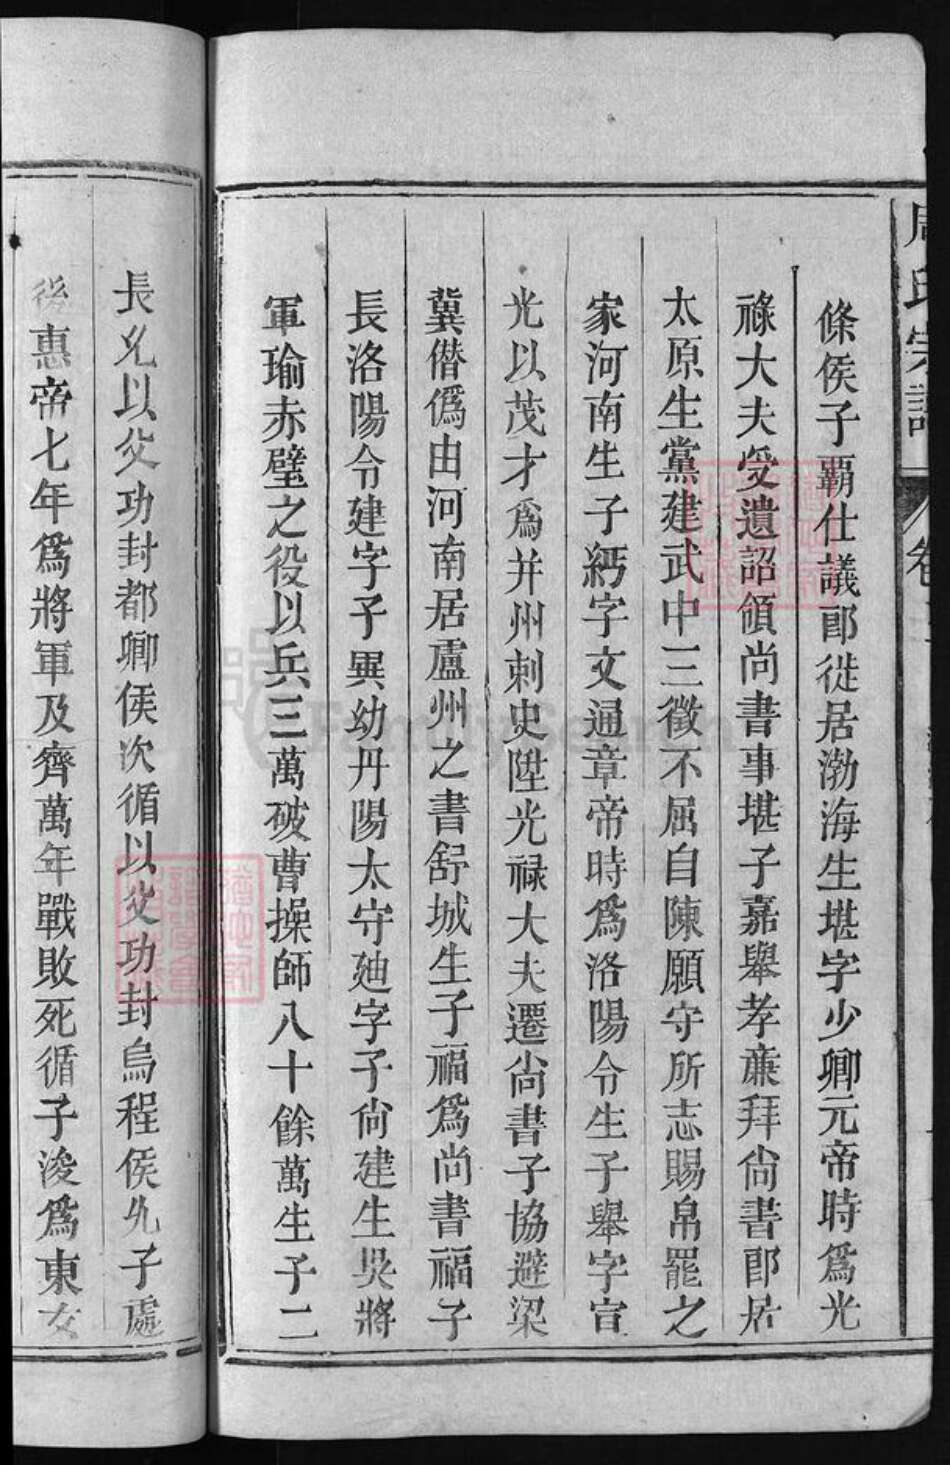 周氏宗譜
條侯子覇仕議郎徙居渤海生堪字少卿元帝時爲光
祿大夫受遺詔領尚書事堪子嘉舉孝亷拜尚書郎居
太原生黨建武中三徵不屈自陳願守所志賜帛罷之
家河南生子䊵字文通章帝時爲洛陽令生子舉字宣
光以茂才爲并州刺史陞光祿大夫遷尚書子協避梁
冀僭僞由河南居盧州之書舒城生子福爲尚書福子
長洛陽令建字子異幼丹陽太守廸字子尚建生吳將
軍瑜赤壁之役以兵三萬破曹操師八十餘萬生子二
長允以父功封都卿侯次循以父功封烏程侯允子處
後惠帝七年爲將軍及齊萬年戰敗死循子浚爲東安
FamilySearch